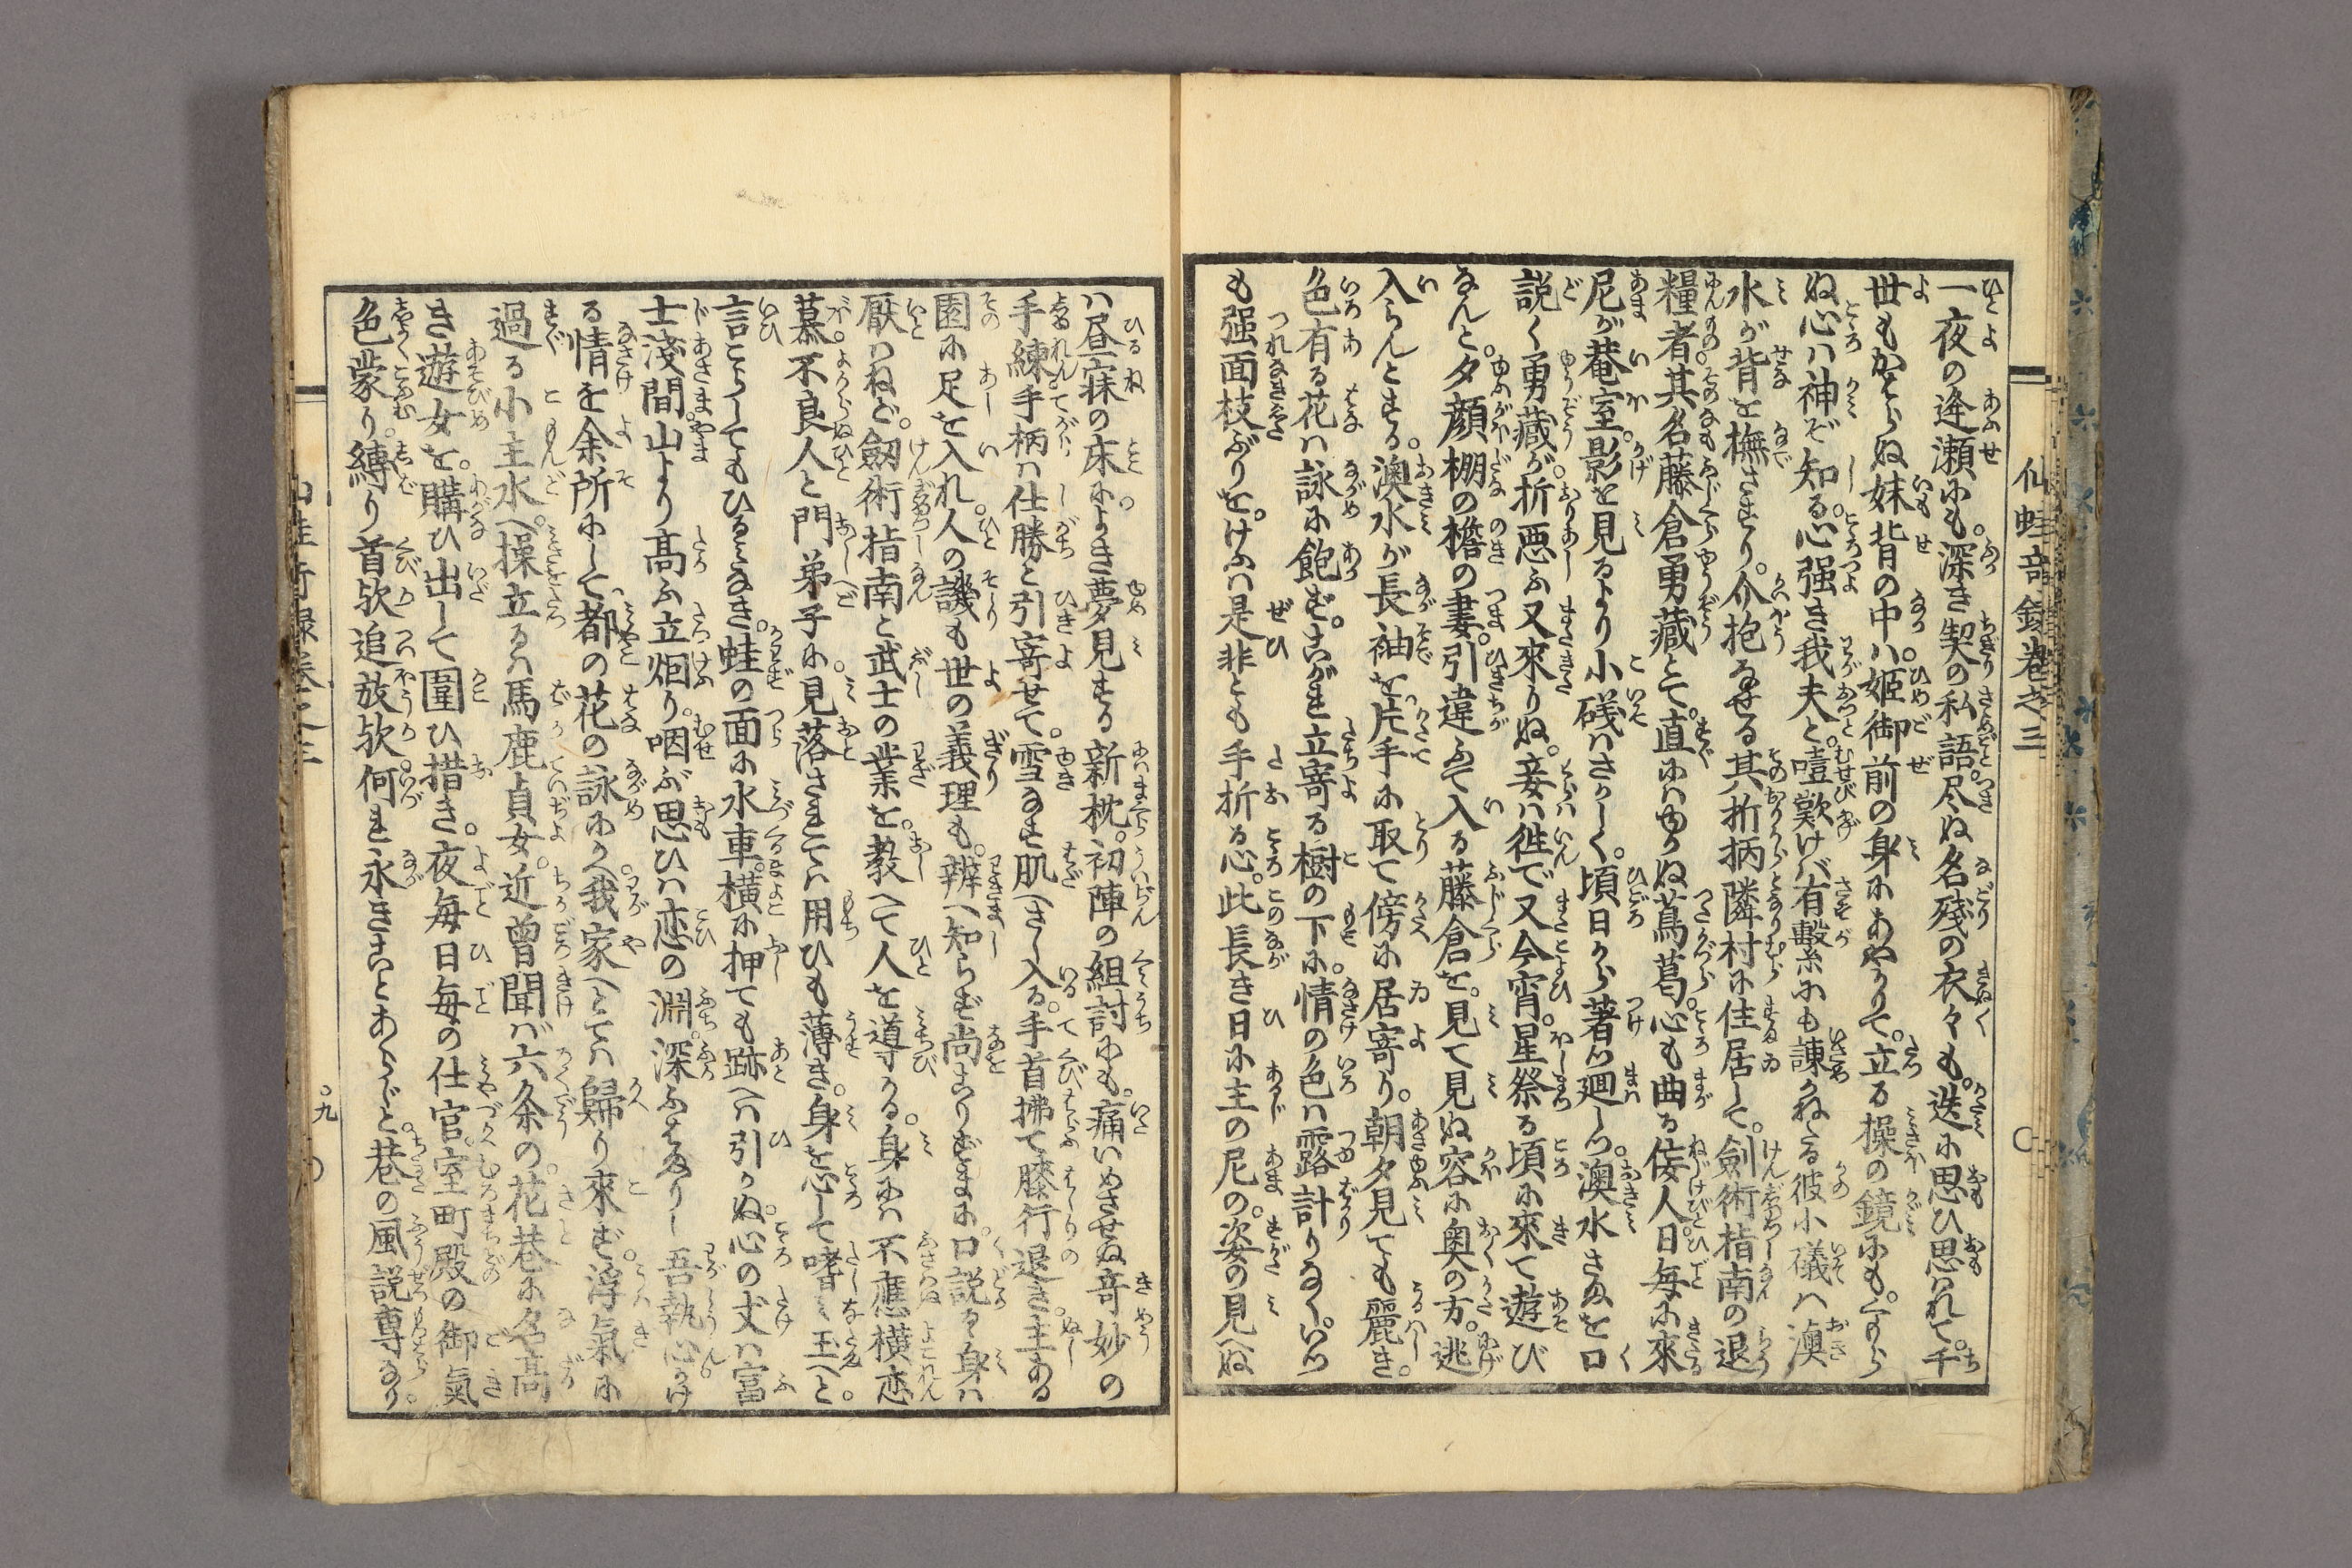 仙蛙奇録巻之三
一夜の逢瀬にも。深き契の私語。尽ぬ名残の衣々も。迭に思ひ思はれて。千
世もかはらぬ妹背の中は。姫御前の身にあやかりて。立る操の鏡にも。くもら
ぬ心は神ぞ知る。心強き我夫と。噎歎けば有繋にも諌かねたる彼小礒は澳
水が背を撫さすり。介抱なせる其折柄隣村に住居して。劍術指南の退
糧者。其名も藤倉勇藏とて。直にはゆかぬ蔦葛。心も曲る佞人。日毎に來
尼が菴室。影を見るより小礒はさかしく。頃日から著つ廻しつ。澳水きぬを口
説く勇藏が。折悪ふ又來りぬ。妾は往で又今宵。星祭る頃に來て遊び
なんと。夕顔棚の檐の妻。引違ふて入る藤倉を。見て見ぬ容に奥の方。逃
入らんとする。澳水が長袖を。片手に取て傍に居寄り。朝夕見ても麗き。
色有る花は詠に飽ず。こがれ立寄る樹の下に。情の色は露計りなく。いつ
も强面枝ぶりを。けふは是非とも手折る心。此長き日に主の尼の。姿の見へぬ
は昼寐の床によき夢見する新枕。初陣の組討にも。痛いめさせぬ竒妙の
手練手柄は仕勝と引寄せて。雪なす肌へさし入る。手首拂て膝行退き。主ある
園に足を入れ。人の譏も世の義理も。辨へ知らず尚こりずまに。口説るゝ身は
厭はねど。劔術指南と武士の業を。教へて人を導かる。身には不應横恋
慕。不良人と門弟子に。見落されては用ひも薄き。身を心して嗜み玉へと。
言こらしてもひるみなき。蛙の面に水車。横に押ても跡へは引かぬ。心の丈は富
士淺間。山より高ふ立烟り。咽ぶ思ひは恋の淵。深ふはまりし吾執心。かけ
る情を余所にして。都の花の詠にかへ。我家へとては歸り來ず。浮氣に
過る小主水へ。操立るは馬鹿貞女。近曽聞ば六条の。花巷に名高
き遊女を。購ひ出して圍ひ措き。夜毎日毎の仕官。室町殿の御氣
色蒙り。縛り首欤追放欤。何れ永きことあらじと。巷の風説專なり。
仙蛙奇録巻之三
九